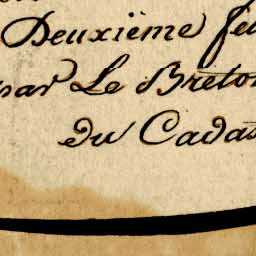 Deuxième fe
par Le Breton
du Cadas